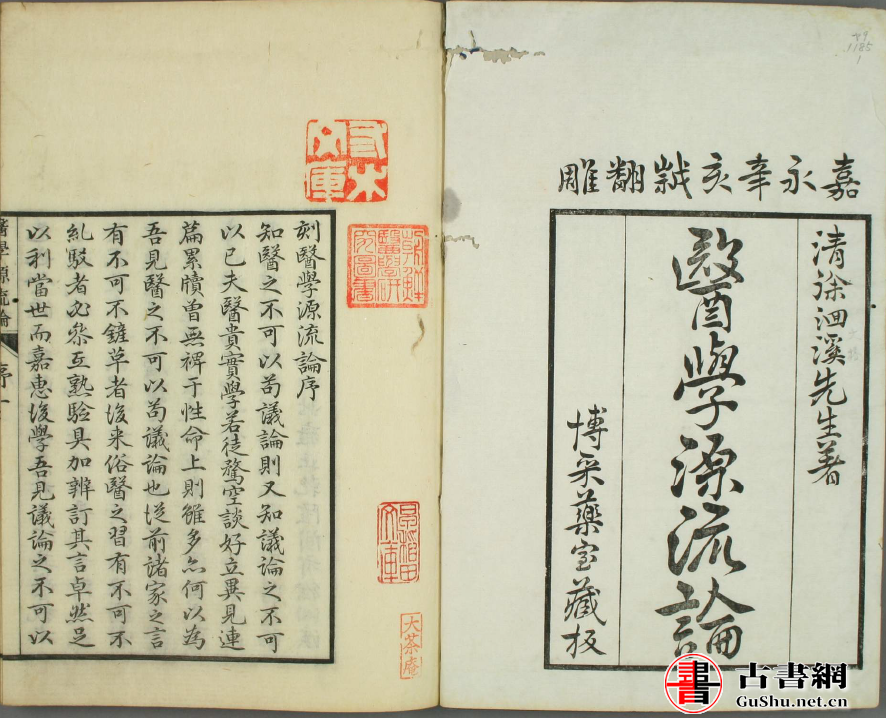 嘉永辛亥歲翻雕
清徐洄溪先生著
醫學源流論
博采藥室藏板
刻醫學源流論序
知醫之不可以苟議論則又知議論之不可
以已夫醫貴實學若徒騖空談好立異見連
篇累牘曾無裨于性命上則雖多亦何以為
吾見醫之不可以苟議論也從前諸家之言
有不可不鏟草者後来俗醫之習有不可不
糺駁者必參互熟驗具加辨訂其言卓然足
以利當世而嘉惠後學吾見議論之不可以
醫學源流論 序 一
大茶庵
1185
1
書 古書網
GuShu.net.cn